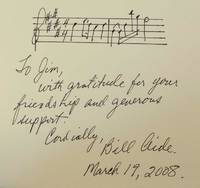 To Jim,
with gratitude for your
friendship and generous
support.
Cordially,
Bill Aide.
March 19, 2008.